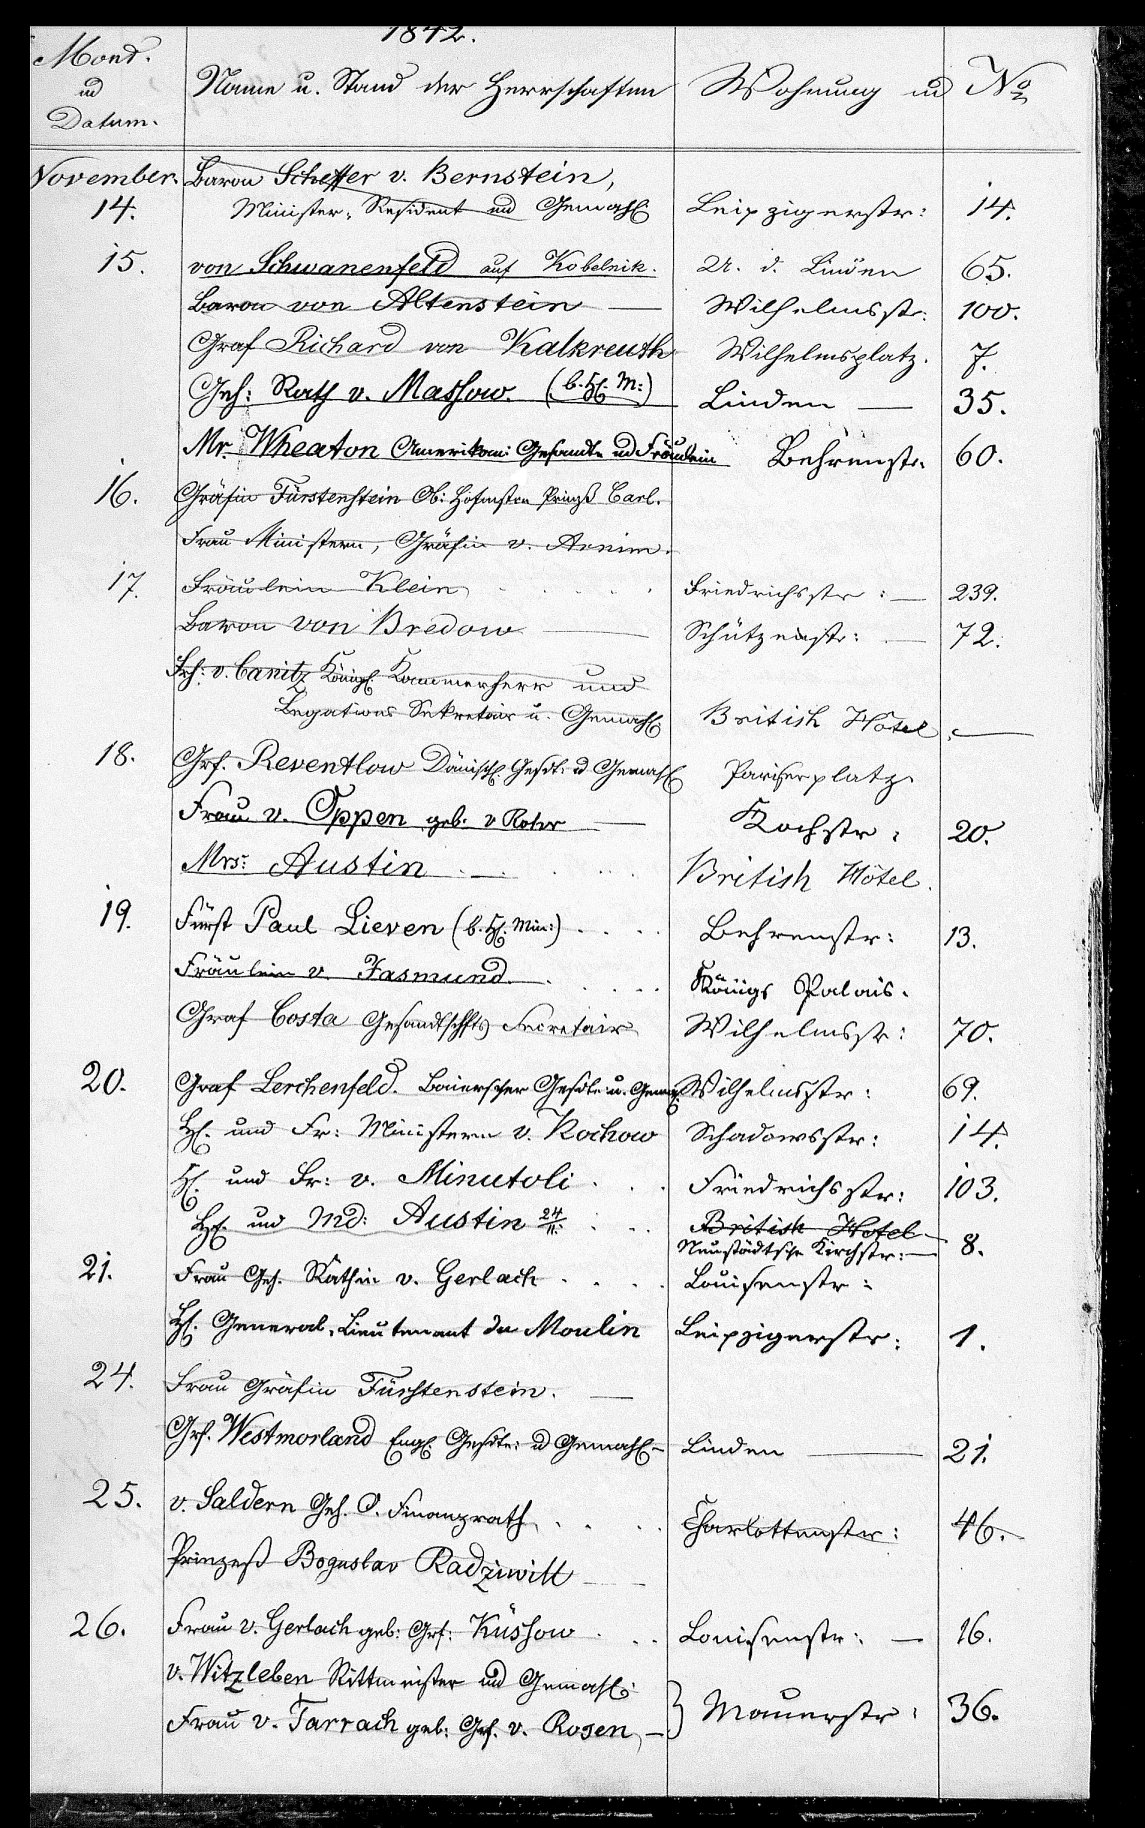 1842.
Monat. ud Datum. Name u. Stand der Herrschaften Wohnung ud No
November. Baron Scheffer v. Bernstein,
14. Minister-Resident ud Gemahl Leipzigerstr: 14.
15. von Schwanenfeld auf Kobelnik. U. d. Linden 65.
Baron von Altenstein — Wilhelmsstr: 100.
Graf Richard von Kalkreuth Wilhelmsplatz. 7.
Geh: Rath v. Massow. (b. H. M:) Linden — 35.
Mr. Wheaton Amerikan: Gesandte ud Fräulein Behrenstr. 60.
16. Gräfin Fürstenstein Ob: Hofmstrn Prinzß Carl.
Frau Ministern, Gräfin v. Arnim.
17. Fräulein Klein Friedrichsstr: — 239.
Baron von Bredow — Schützenstr: — 72.
Frh: v. Canitz Königl. Kammerherr und
Legations Sekretair u. Gemahl British Hôtel. —
18. Grf. Reventlow Dänisch. Gesdt: ud Gemahl Pariserplatz
Frau v. Oppen geb. v Roter — Kochstr. 20.
Mrs: Austin . — . British Hôtel.
19. Fürst Paul Lieven (b. H. Min:) . . . . Behrenstr: 13.
Fräulein v. Jasmund . . . . Königs Palais.
Graf Costa Gesandtschfts Secretair Wilhelmsstr: 70.
20. Graf Lerchenfeld. Baierscher Gesdte u. Gemahl Wilhelmsstr: 69.
H. und Fr: Ministern v. Rochow Schadowsstr: 14.
H. und Fr: v. Minutoli . . . Friedrichsstr: 103.
H. und Md: Austin 24/11. . . . British Hotel
Neustädtsche Kirchstr: — 8.
21. Frau Geh. Räthin v. Gerlach . . . . Louisenstr:
H. General-Lieutenant du Moulin Leipzigerstr: 1.
24. Frau Gräfin Fürstenstein. —
Grf. Westmorland Engl. Gesdte: ud Gemahl — Linden — 21.
25. v. Saldern Geh. O. Finanzrath . . . . Charlottenstr: 46.
Prinzeß Boguslav Radziwill —
26. Frau v. Gerlach geb: Grf: Küssow . . . Louisenstr: — 16.
v. Witzleben Rittmeister ud Gemahl:
Frau v. Tarrach geb: Grf. v. Rosen, — } Mauerstr: 36.